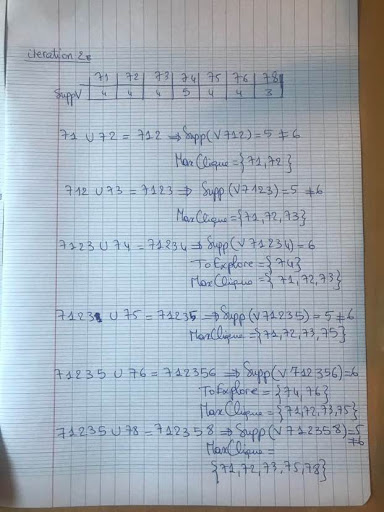 iteration 2:
71 72 73 74 75 76 78
SuppV 4 4 4 5 4 4 3
71 ∪ 72 = 712 ⇒ Supp(∨712) = 5 ≠ 6
MaxClique = {71, 72}
712 ∪ 73 = 7123 ⇒ Supp(∨7123) = 5 ≠ 6
MaxClique = {71, 72, 73}
7123 ∪ 74 = 71234 ⇒ Supp(∨71234) = 6
ToExplore = {74}
MaxClique = {71, 72, 73}
7123 ∪ 75 = 71235 ⇒ Supp(∨71235) = 5 ≠ 6
MaxClique = {71, 72, 73, 75}
71235 ∪ 76 = 712356 ⇒ Supp(∨712356) = 6
ToExplore = {74, 76}
MaxClique = {71, 72, 73, 75}
71235 ∪ 78 = 712358 ⇒ Supp(∨712358) = 5
≠ 6
MaxClique =
{71, 72, 73, 75, 78}